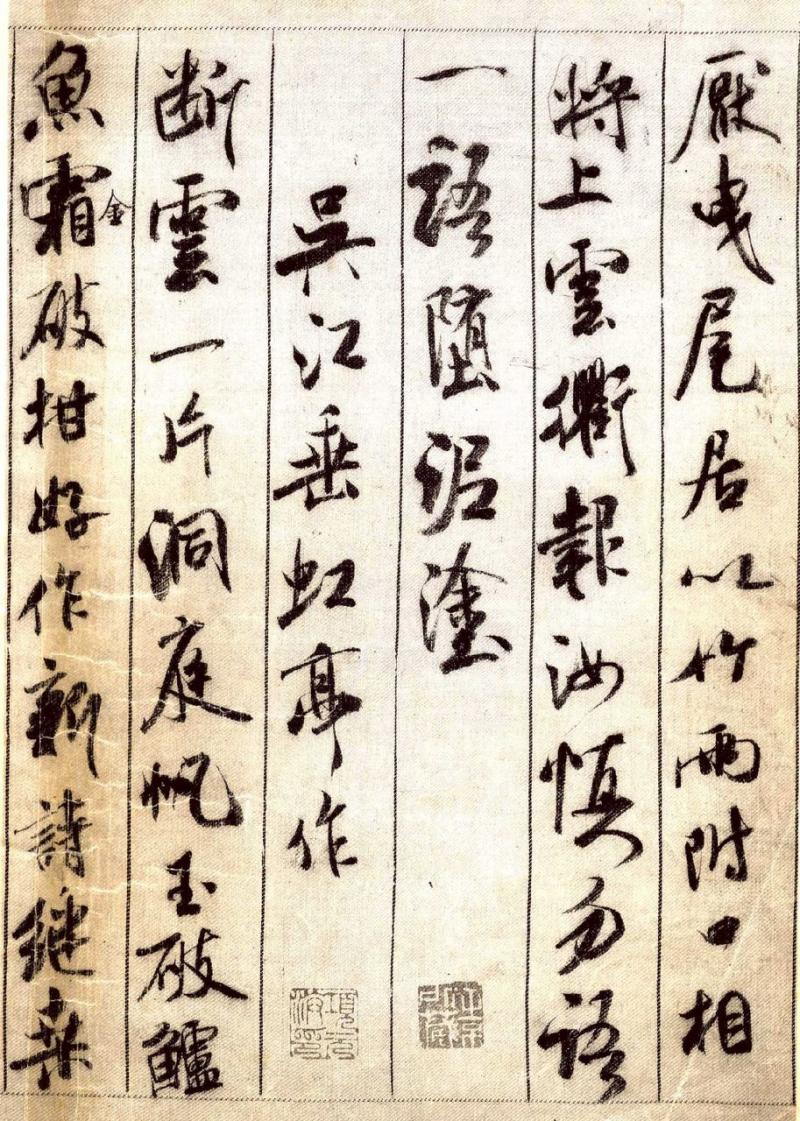 厭曳尾居以竹兩附口相
將上雲衢報汝慎勿語
一語墮泥塗
吳江垂虹亭作
断雲一片洞庭帆玉破鱸
魚霜破柑好作新詩繼桑
金